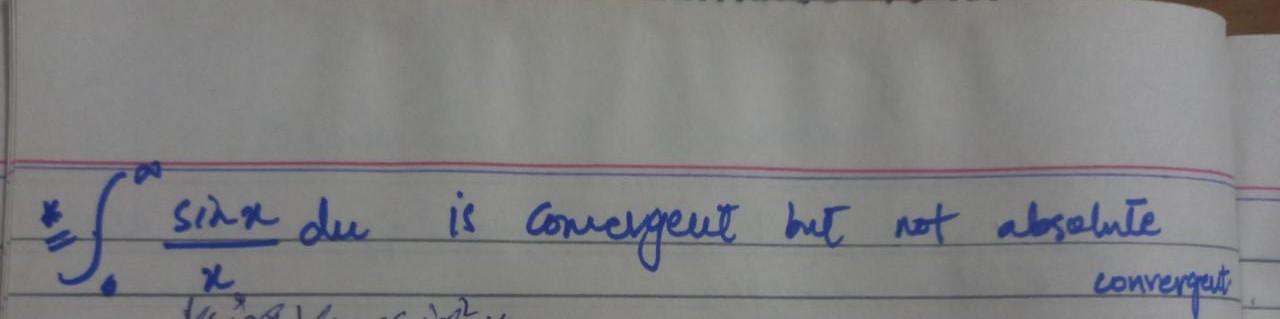 * ∫₀^∞ sin x / x dx is convergent but not absolute
convergent